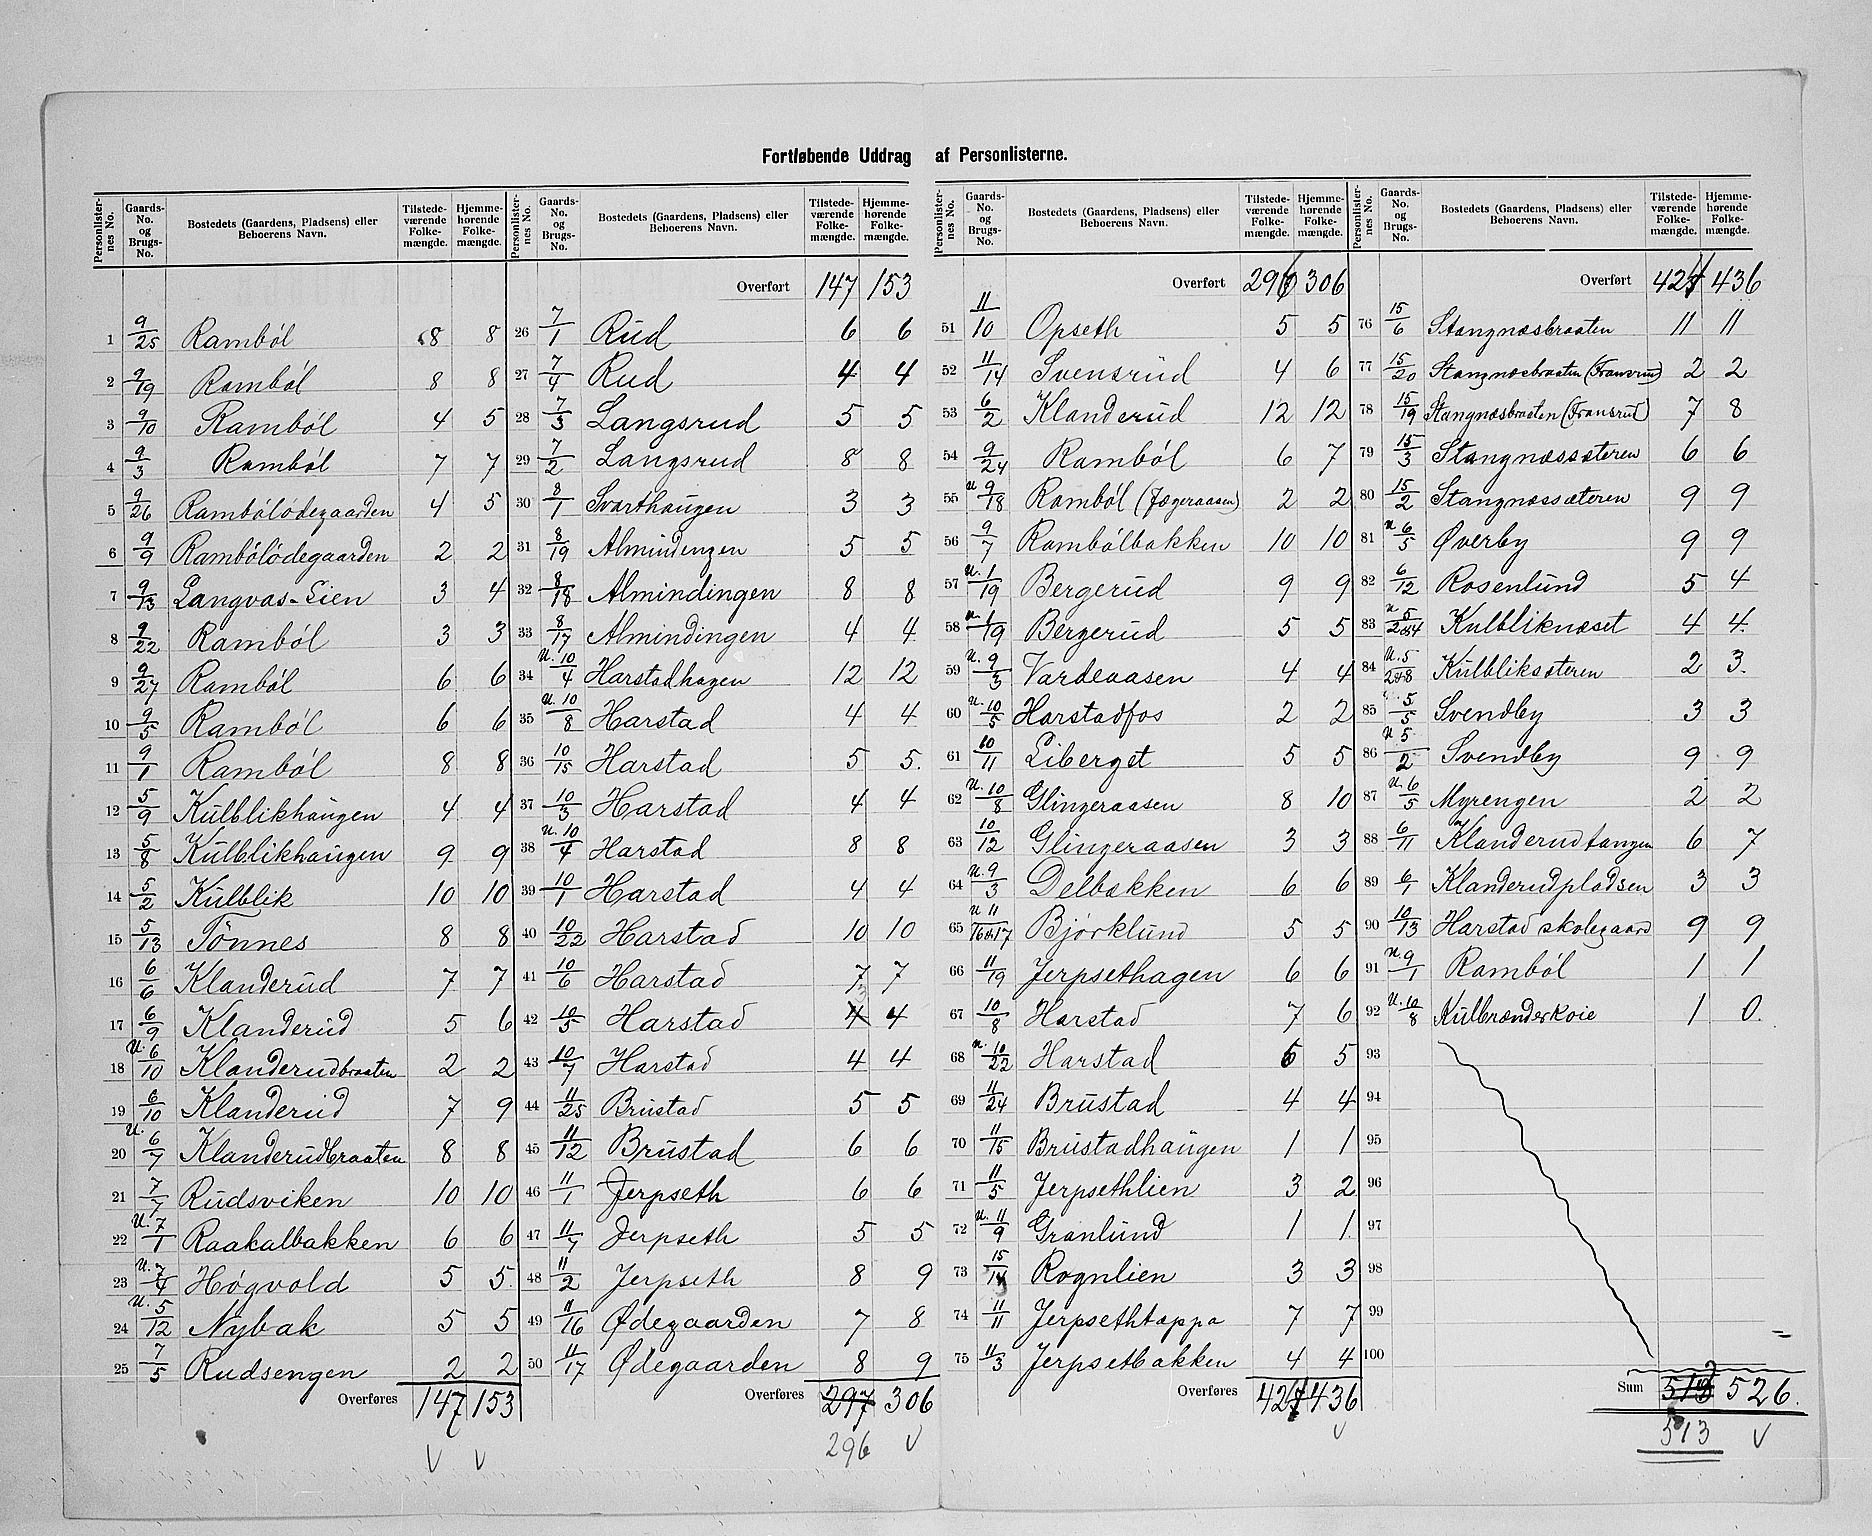 Fortløbende Uddrag af Personlisterne.
Personlister- nes No. | Gaards- No. og Brugs- No. | Bostedets (Gaardens, Pladsens) eller Beboerens Navn. | Tilstede- værende Folke- mængde. | Hjemme- hørende Folke- mængde.
1 9/25 Ramböl 8 8
2 9/19 Ramböl 8 8
3 9/10 Ramböl 4 5
4 9/3 Ramböl 7 7
5 9/26 Rambölödegaarden 4 5
6 9/9 Rambölödegaarden 2 2
7 9/13 Langvas-Lien 3 4
8 9/22 Ramböl 3 3
9 9/27 Ramböl 6 6
10 9/5 Ramböl 6 6
11 9/1 Ramböl 8 8
12 5/9 Kulblikhaugen 4 4
13 5/8 Kulblikhaugen 9 9
14 5/2 Kulblik 10 10
15 5/13 Tönnes 8 8
16 6/6 Klanderud 7 7
17 6/9 Klanderud 5 6
18 U. 6/10 Klanderudbraaten 2 2
19 6/10 Klanderud 7 9
20 U. 6/7 Klanderudbraaten 8 8
21 7/7 Rudsviken 10 10
22 U. 7/1 Raakalbakken 6 6
23 U. 7/4 Høgvold 5 5.
24 U. 5/12 Nybak 5 5
25 7/5 Rudsengen 2 2
Overføres 147 153
Personlister- nes No. | Gaards- No. og Brugs- No. | Bostedets (Gaardens, Pladsens) eller Beboerens Navn. | Tilstede- værende Folke- mængde. | Hjemme- hørende Folke- mængde.
Overført 147 153
26 7/1 Rud 6 6
27 7/4 Rud 4 4
28 7/3 Langsrud 5 5
29 7/2 Langsrud 8 8
30 8/1 Svarthaugen 3 3
31 8/19 Almindengen 5 5
32 8/18 Almindingen 8 8
33 8/17 Almindingen 4 4
34 U. 10/4 Harstadhagen 12 12
35 U. 10/8 Harstad 4 4
36 10/15 Harstad 5 5.
37 10/3 Harstad 4 4
38 U. 10/4 Harstad 8 8
39 10/1 Harstad 4 4
40 10/22 Harstad 10 10
41 10/6 Harstad 7 7
42 10/5 Harstad 4 3 4
43 10/7 Harstad 4 4
44 11/25 Brustad 5 5
45 11/12 Brustad 6 6
46 11/1 Jerpseth 6 6
47 11/7 Jerpseth 5 5
48 11/2 Jerpseth 8 9
49 11/16 Ødegaarden 7 8
50 11/17 Ødegaarden 8 9
Overføres 297 306
296
Personlister- nes No. | Gaards- No. og Brugs- No. | Bostedets (Gaardens, Pladsens) eller Beboerens Navn. | Tilstede- værende Folke- mængde. | Hjemme- hørende Folke- mængde.
Overført 296 306
51 11/10 Opseth 5 5
52 11/14 Svensrud 4 6
53 6/2 Klanderud 12 12
54 9/24 Ramböl 6 7
55 U 9/18 Ramböl (Jægeraasen) 2 2
56 9/7 Rambölbakken 10 10
57 U. 1/19 Bergerud 9 9
58 U. 1/19 Bergerud 5 5
59 U. 9/3 Vardeaasen 4 4
60 U. 10/5 Harstadfos 2 2
61 10/11 Liberget 5 5
62 U. 10/8 Glingeraasen 8 10
63 10/12 Glingeraasen 3 3
64 U. 9/3 Delbakken 6 6
65 U 11/16 & 17 Björklund 5 5
66 11/19 Jerpsethagen 6 6
67 10/8 Harstad 7 6
68 U. 10/22 Harstad 6 5
69 11/24 Brustad 4 4
70 11/15 Brustadhaugen 1 1
71 11/5 Jerpsethlien 3 2
72 U. 11/9 Granlund 1 1.
73 15/14 Rognlien 3 3
74 11/11 Jerpsethtappa 7 7
75 11/3 Jerpsetbakken 4 4
Overføres 424 436
Personlister- nes No. | Gaards- No. og Brugs- No. | Bostedets (Gaardens, Pladsens) eller Beboerens Navn. | Tilstede- værende Folke- mængde. | Hjemme- hørende Folke- mængde.
Overført 424 436
76 15/6 Stangnæsbraaten 11 11
77 15/20 Stangnæsbraaten (Fransrud) 2 2
78 15/19 Stangnæsbraaten (Fransrud) 7 8
79 15/3 Stangnæssæteren 6 6
80 15/2 Stangnæssæteren 9 9
81 U 6/5 Øverby 9 9
82 6/12 Rosenlund 5 4
83 U 5/2 & 4 Kulbliknæset 4 4.
84 U. 5/2 & 8 Kulbliksæteren 2 3.
85 5/5 Svendby 3 3
86 U 5/2 Svendby 9 9
87 U. 6/5 Myrengen 2 2
88 6/11 Klanderudtangen 6 7
89 6/1 Klanderudpladsen 3 3
90 10/13 Harstad skolegaard 9 9
91 U 9/1 Ramböl 1 1
92 U. 10/8 Kulbrænderkoie 1 0.
93
94
95
96
97
98
99
100
Sum 526.
513